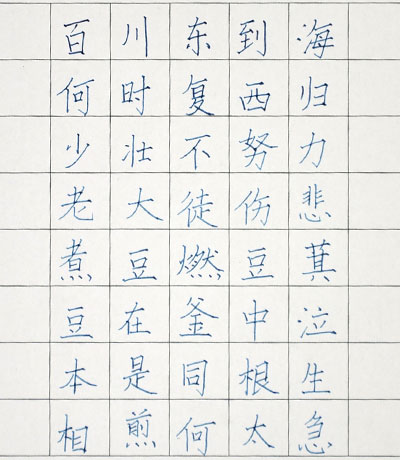 百川东到海
何时复西归
少壮不努力
老大徒伤悲
煮豆燃豆萁
豆在釜中泣
本是同根生
相煎何太急